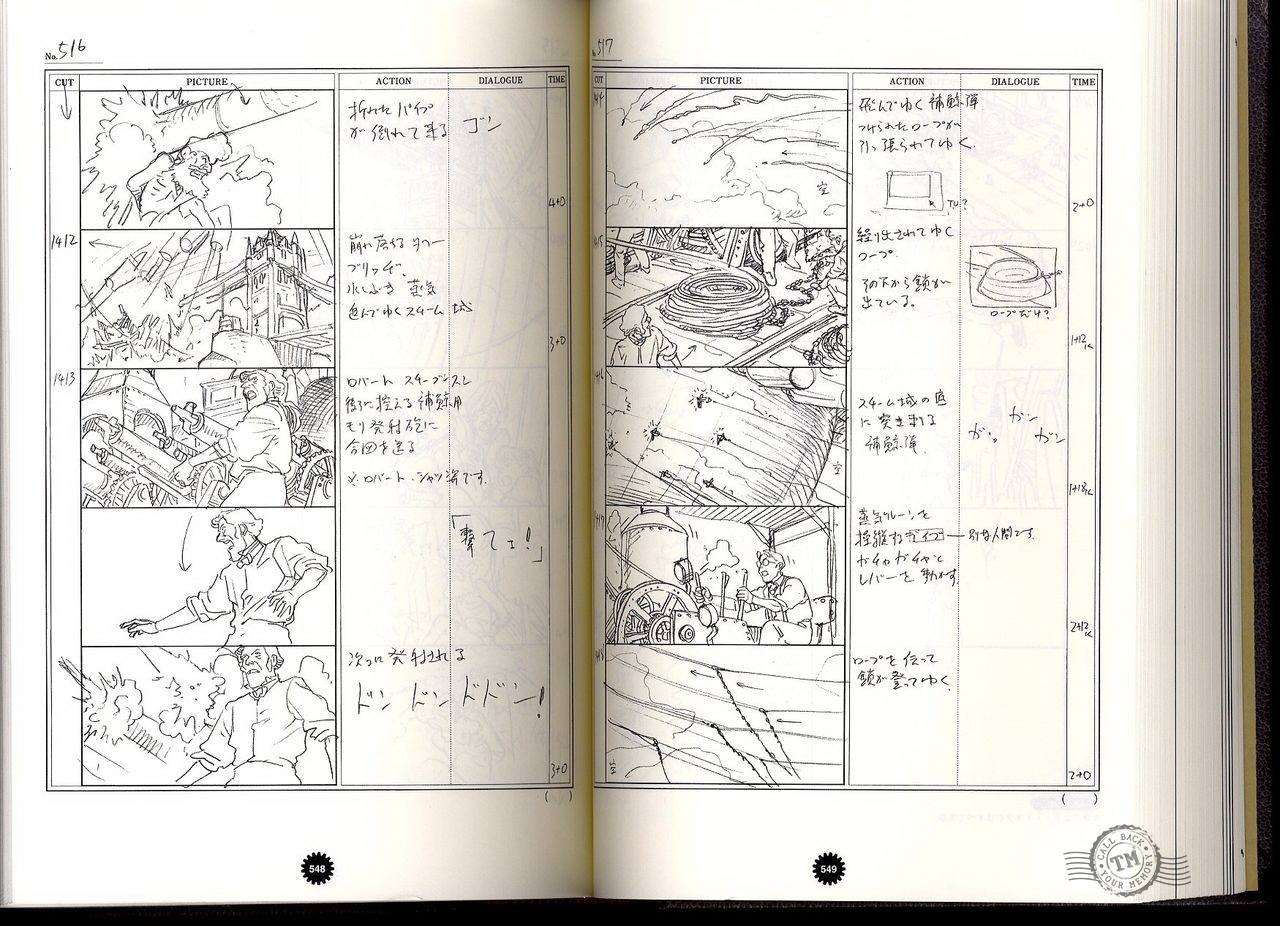 No. 516
CUT PICTURE ACTION DIALOGUE TIME
折れたパイプ
が倒れて来る ゴン
4+0
1412
崩れ落ちるタワー
ブリッヂ、
水しぶき 蒸気
進んでゆくスチーム城
3+0
1413
ロバート スチーブンスン
後に控える捕鯨用
モリ発射砲に
合図を送る
※ロバート・シャツ姿です。
「撃てェ!」
次々に発射される
ドン ドン ドドーン!
3+0
548
517
CUT PICTURE ACTION DIALOGUE TIME
飛んでゆく補鯨弾
つけられたロープが
引っ張られてゆく。
T.U?
空
2+0
繰り出されてゆく
ロープ。
その下から鎖が
出ている。
ロープだけ?
1+12K
スチーム城の直
に突き刺る
補鯨弾
ガン ガン ガン
空
1+18K
蒸気クレーンを
操縦するデイブ 別な人間です。
ガチャガチャと
レバーを動かす。
2+12K
ロープを伝って
鎖が登ってゆく。
空
2+0
549
CALL BACK
TM
YOUR MEMORY